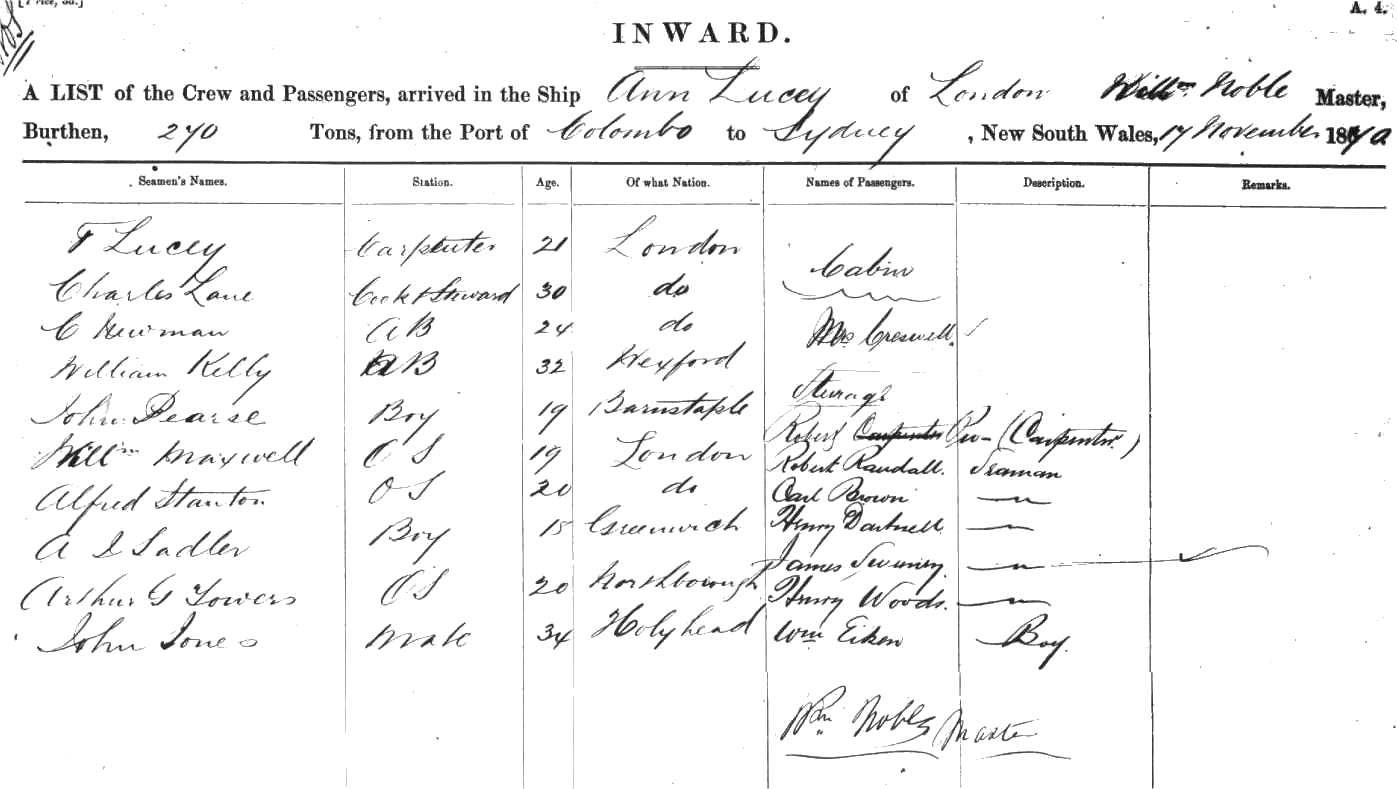 [Price, 3d.]
A. 4.
INWARD.
A LIST of the Crew and Passengers, arrived in the Ship Ann Lucey of London Willm Noble Master,
Burthen, 270 Tons, from the Port of Colombo to Sydney, New South Wales, 17 November
Seamen's Names. Station. Age. Of what Nation. Names of Passengers. Description. Remarks.
T Lucey Carpenter 21 London
Cabin
Charles Lane Cook & Steward 30 do
C Newman AB 24 do Mrs Creswell.
William Kelly AB 32 Wexford
Steerage
John Pearse Boy 19 Barnstaple
Robert Carpenter (Carpenter)
Willm Maxwell OS 19 London Robert Randall. Seaman
Alfred Stanton OS 20 do Carl Brown —
A I Sadler Boy 18 Greenwich Henry Dartnell —
James Sweeney —
Arthur G Towers OS 20 Northborough Henry Woods. —
John Jones Mate 34 Holyhead Wm Eiken Boy.
Wm Noble Master